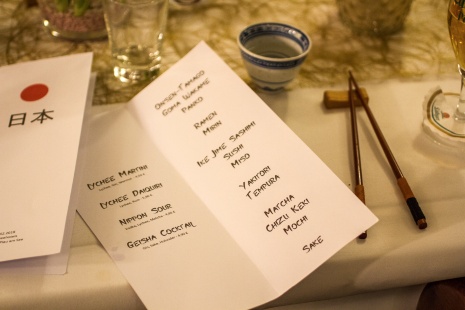 日本
Lychee Martini
Lychee Daiquiri
Nippon Sour
Geisha Cocktail
Onsen-Tamago
Goma Wakame
Panko
Ramen
Mirin
Ike Jime Sashimi
Sushi
Miso
Yakitori
Tempura
Matcha
Chizu Keki
Mochi
Sake